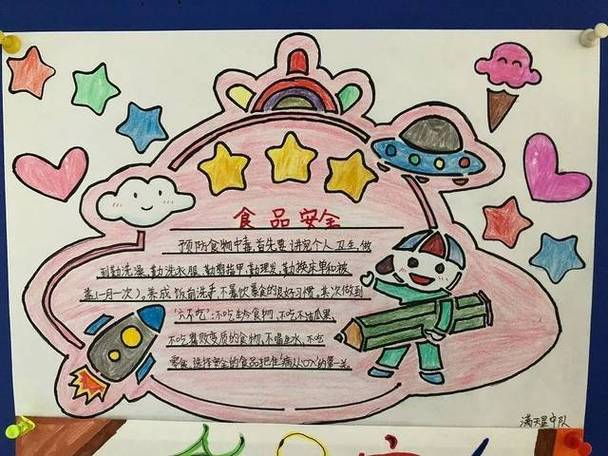 食品安全
预防食物中毒,首先要讲究个人卫生,做
到勤洗澡,勤洗衣服,勤剪指甲,勤理发,勤换床单和被
盖(一月一次)。养成饭前洗手,不暴饮暴食的良好习惯。其次做到
"六不吃":不吃生冷食物,不吃不洁瓜果,
不吃腐败变质的食物,不喝生水,不吃
零食,选择安全的食品把住"病从口入"的第一关。
满天星中队